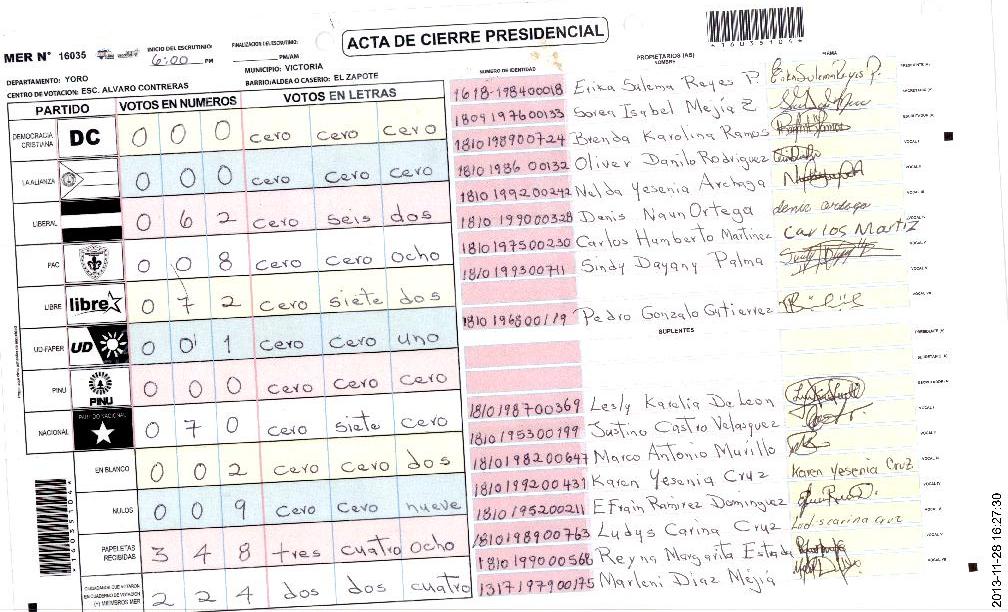 ACTA DE CIERRE PRESIDENCIAL
*1603510４4*
MER N° 16035
INICIO DEL ESCRUTINIO: 6:00 PM
FINALIZACION DEL ESCRUTINIO: PM/AM
DEPARTAMENTO: YORO
MUNICIPIO: VICTORIA
CENTRO DE VOTACION: ESC. ALVARO CONTRERAS
BARRIO/ALDEA O CASERIO: EL ZAPOTE
PARTIDO VOTOS EN NUMEROS VOTOS EN LETRAS
DEMOCRACIA CRISTIANA DC 0 0 0 cero cero cero
LA ALIANZA 0 0 0 cero cero cero
LIBERAL 0 6 2 cero seis dos
PAC 0 0 8 cero cero ocho
LIBRE libre 0 7 2 cero siete dos
UD-FAPER UD 0 0 1 cero cero uno
PINU PINU 0 0 0 cero cero cero
NACIONAL PARTIDO NACIONAL 0 7 0 cero siete cero
EN BLANCO 0 0 2 cero cero dos
NULOS 0 0 9 cero cero nueve
PAPELETAS RECIBIDAS 3 4 8 tres cuatro ocho
CIUDADANOS QUE VOTARON EN CUADERNO DE VOTACION (+) MIEMBROS MER 2 2 4 dos dos cuatro
NUMERO DE IDENTIDAD PROPIETARIOS (AS) NOMBRE FIRMA
1618-198400018 Erika Sulema Reyes P. Erika Sulema Reyes P.
1809197600133 Sorea Isabel Mejía Z
1810198900724 Brenda Karolina Ramos
1810198600132 Oliver Danilo Rodriguez
1810199200242 Nelda Yesenia Archaga
1810199000328 Denis Naun Ortega
1810197500230 Carlos Humberto Martinez Carlos Martiz
1810199300711 Sindy Dayany Palma
1810196800119 Pedro Gonzalo Gutierrez
SUPLENTES
1810198700369 Lesly Karelia De Leon
1810195300199 Justino Castro Velasquez
1810198200647 Marco Antonio Murillo
1810199200431 Karen Yesenia Cruz Karen Yesenia Cruz
1810195200211 Efrain Ramirez Dominguez
1810198900763 Ludys Carina Cruz
1810199000568 Reyna Margarita Estrada
1317197900175 Marleni Diaz Mejía
2013-11-28 16:27:30